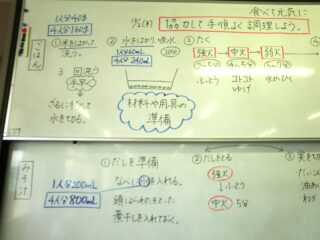 食べて元気に
10/5(木)
協力して手順よく調理しよう。
ごはん
1人分40g
4人分160g
①米をはかって
洗う。
3回洗う
手早く
ざるにあげて
水を切る。
②水をはかり吸水
1人分60mL
4人分240mL
30分
材料や用具の
準備
③たく
強火→中火→弱火
ふっとう
コトコト
ゆげ
水がひく
みそ汁
1人分200mL
4人分800mL
①だしを準備
なべに水を入れる。
頭とはらわたをとった
煮干しを入れておく。
②だしをとる
強火
↓ふっとう
中火 5分
③実を切